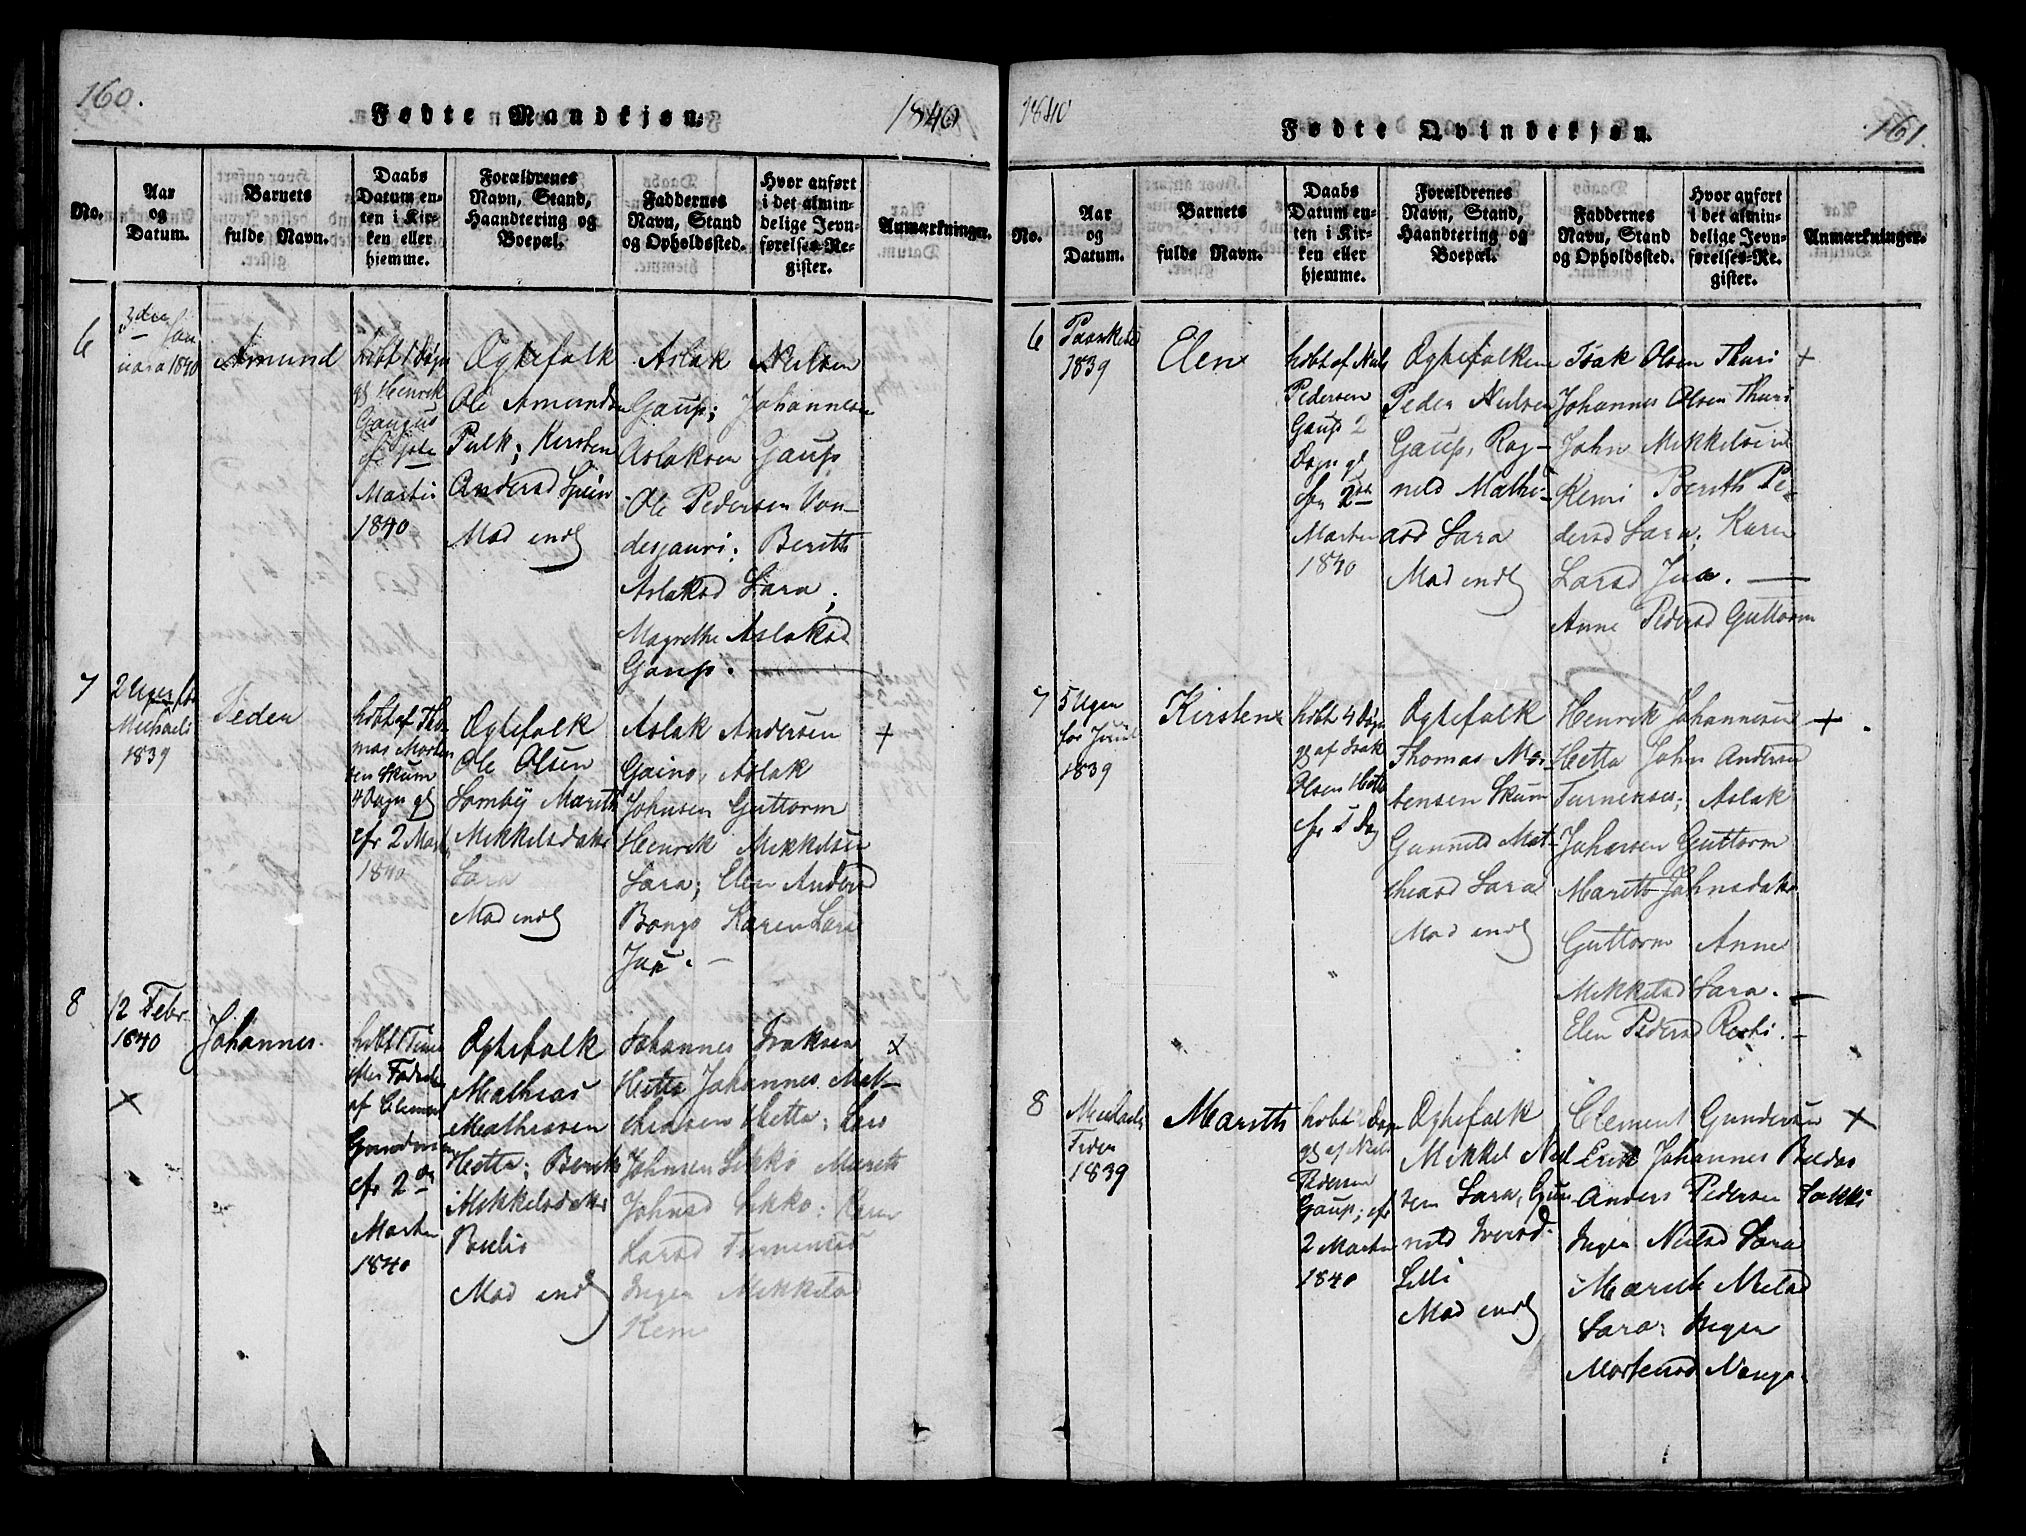 160.
Fødte Mandkjøn.
1840
No.
Aar
og
Datum.
Barnets
fulde Navn.
Daabs
Datum en-
ten i Kir-
ken eller
hjemme.
Forældrenes
Navn, Stand,
Haandtering og
Boepæl.
Faddernes
Navn, Stand
og Opholdssted.
Hvor anført
i det almin-
delige Jevn-
førelses-Re-
gister.
Anmærkninger.
6
3die Jan
uara 1840
Amund
hobt 1 Dagn
gl Henrik
Martii
1840
Ogtefolk
Ole Amundsen
Pulk; Kirsten
Andersd Spein
Mad endl
Aslak Nilsen
Gaup; Johannes
Aslaksen Gaup
Ole Pedersen Van-
desjauri; Berith
Aslaksd Sara;
Magrethe Aslaksd
Gaup.
7
2 Uger for
Michaeli
1839
Peder
hobt af Tho-
mas Morten
sen Skum
4 Dagn gl
cfr 2 Mart
1840
Ogtefolk
Ole Olsen
Somby Marith
Mikkelsdater
Sara
Mad endl
Aslak Andersen
Gaino, Aslak
Johnsen Guttorm
Henrik Mikkelsen
Sara; Elen Andersd
Bongo Karen Lars
+
8
12 Febr.
1840
Johannes.
hobt 1 Time
efter Fødselen
af Clement
Gundersen
cfr 2den
Marten
1840
Ogtefolk
Mathias
Mathiesen
Hetta; Berith
Mikkelsdater
Mad endl
Johannes Isaksen
Hetta Johannes Mat-
thiasen Hetta; Lars
Johnsen Sikko Marith
Johnsd Sikko: Karen
Larsd Turnensis
Inger Mikkelsd
Kemi
x
1840
Fødte Qvindekjøn.
161.
No.
Aar
og
Datum.
Barnets
fulde Navn.
Daabs
Datum en-
ten i Kir-
ken eller
hjemme.
Forældrenes
Navn, Stand,
Haandtering og
Boepæl.
Faddernes
Navn, Stand
og Opholdssted.
Hvor anført
i det almin-
delige Jevn-
førelses-Re-
gister.
Anmærkninger.
6
1839
Elen
hobt af Nils
Pedersen
Gaup 2
Dagn gl
cfr 2den
Marten
1840
Ogtefolkene
Peder Nilsen
Gaup, Rag-
nild Mathi-
asd Sara
Mad endl
Isak Olsen Thuri
Johannes Olsen Thuri
John Mikkelsen
Kemi Berith Pe-
dersd Sara; Karen
Larsd
Anne Pedersd Guttorm
+
7
5 Ugen
for Juul
1839
Kirsten
hobt 4 Dagn
gl af Isak
Olsen Hetta
cfr 1 Dag
Ogtefolk
Thomas Mor-
tensen Skum
Gunnild Mat-
thiasd Sara
Mad endl
Henrik Johannesen
Hetta John Andersen
Turnensis; Aslak
Johnsen Guttorm
Marith Johnsdater
Guttorm Anne
Mikkelsd Sara.
Elen Pedersd
+
8
Michaeli
Tiden
1839
Marith
hobt 1 Dagn
gl af Nils
Pedersen
Gaup; cfr
2 Marten
1840
Ogtefolk
Mikkel Nil
sen Sara; Gun
nild Iversd.
Lilli
Mad endl
Clement Gundersen
Johannes
Anders Pedersen
Inger Nilsd Sara
Marith Nilsd
Sara: Inger
Mortensd
x